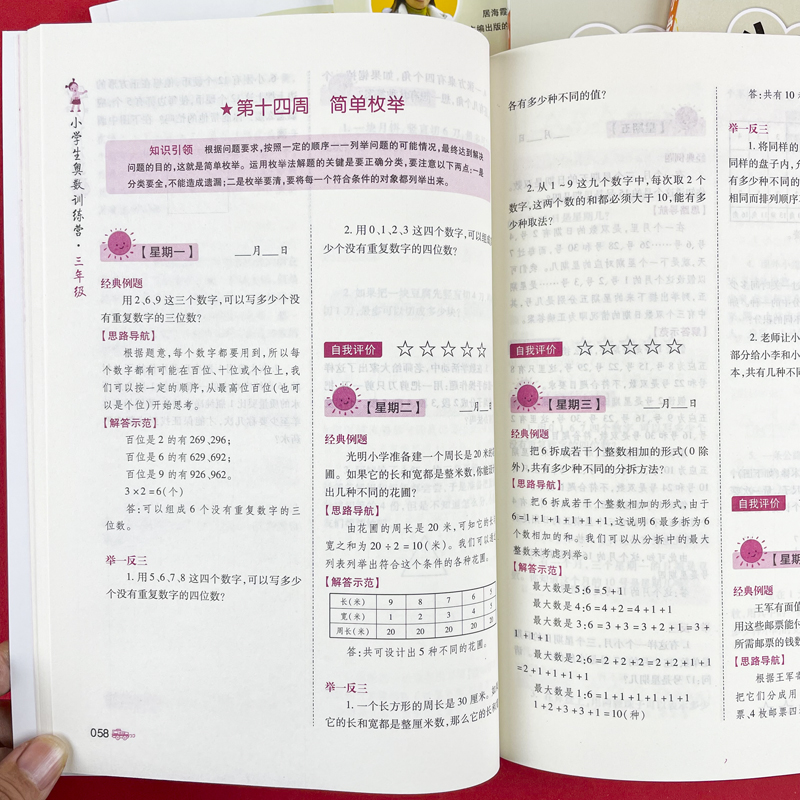 居海霞
编出版的
小学生奥数训练营·三年级
★第十四周 简单枚举
知识引领 根据问题要求,按照一定的顺序一一列举问题的可能情况,最终达到解决
问题的目的,这就是简单枚举。运用枚举法解题的关键是要正确分类,要注意以下两点:一是
分类要全,不能造成遗漏;二是枚举要清,要将每一个符合条件的对象都列举出来。
【星期一】 ___月___日
经典例题
用2、6、9这三个数字,可以写多少个没
有重复数字的三位数?
【思路导航】
根据题意,每个数字都要用到,所以每
个数字都有可能在百位、十位或个位上,我
们可以按一定的顺序,从最高位百位(也可
以是个位)开始思考。
【解答示范】
百位是2的有269、296;
百位是6的有629、692;
百位是9的有926、962。
3×2=6(个)
答:可以组成6个没有重复数字的三
位数。
举一反三
1. 用5、6、7、8这四个数字,可以写多少
个没有重复数字的四位数?
058
2. 用0、1、2、3这四个数字,可以组
少个没有重复数字的四位数?
自我评价 ☆☆☆☆☆
【星期二】 ___月___日
经典例题
光明小学准备建一个周长是20米的
圃。如果它的长和宽都是整米数,你能
出几种不同的花圃?
【思路导航】
由花圃的周长是20米,可知它的长
宽之和为20÷2=10(米)。我们可以
列表列举出符合这个条件的各种花圃。
【解答示范】
长(米) 9 8 7 6 5
宽(米) 1 2 3 4 5
周长(米) 20 20 20 20 20
答:共可设计出5种不同的花圃。
举一反三
1. 一个长方形的周长是30厘米。
它的长和宽都是整厘米数,那么它的长和
各有多少种不同的值?
2. 从1~9这九个数字中,每次取2个
数字,这两个数的和都必须大于10,能有多
少种取法?
自我评价 ☆☆☆☆☆
【星期三】 ___月___日
经典例题
把6拆成若干个整数相加的形式(0除
外),共有多少种不同的分拆方法?
【思路导航】
把6拆成若干个整数相加的形式,由于
6=1+1+1+1+1+1,这说明6最多拆为6
个数相加的和。我们可以从分拆中的最大
整数来考虑列举。
【解答示范】
最大数是5:6=5+1
最大数是4:6=4+2=4+1+1
最大数是3:6=3+3=3+2+1=3+
1+1+1
最大数是2:6=2+2+2=2+2+1+1
=2+1+1+1+1
最大数是1:6=1+1+1+1+1+1
1+2+3+3+1=10(种)
答:共有10
举一反三
1. 将同样的
同样的盘子内,允
有多少种不同的
相同而排列顺序
2. 老师让小
部分给小李和小
本,共有几种不同
自我评价
【星期
经典例题
王军有面值
用这些邮票能付
所需邮票的钱数
【思路导航】
根据王军
把它们分成用
票、4枚邮票四